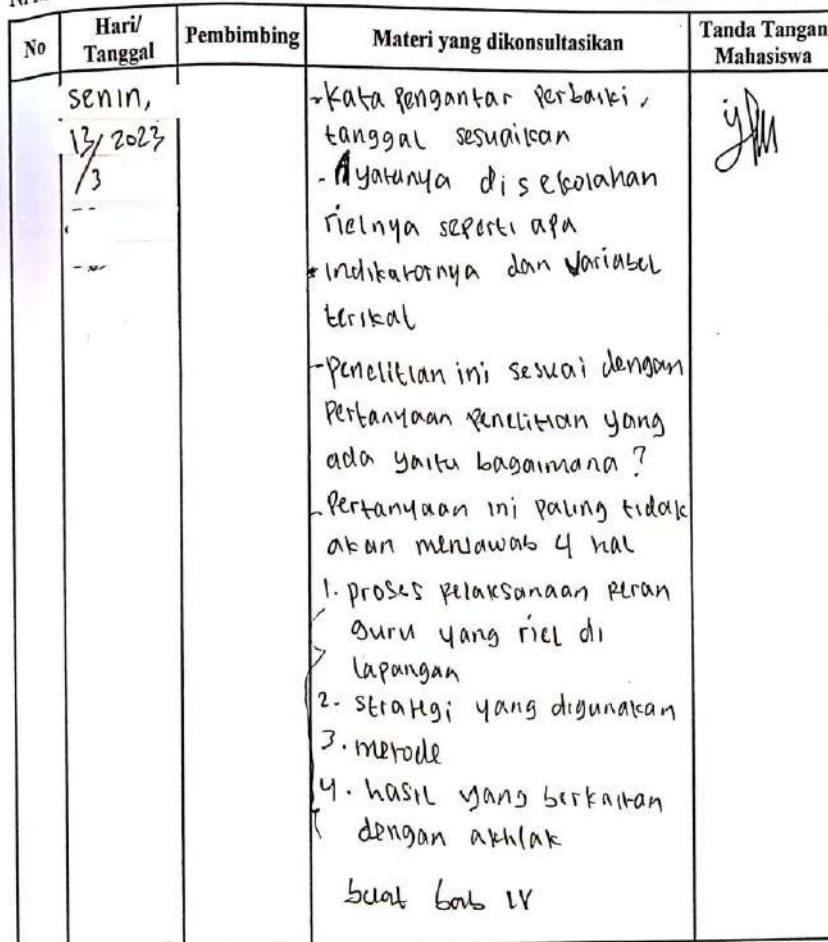 No
Hari/
Tanggal
Pembimbing
Materi yang dikonsultasikan
Tanda Tangan
Mahasiswa
senin,
13/2023
/3
- Kata pengantar perbaiki,
tanggal sesuaikan
- Ayatunya disekolahan
rielnya seperti apa
* indikatornya dan variabel
terikat
- penelitian ini sesuai dengan
Pertanyaan penelitian yang
ada yaitu bagaimana ?
- Pertanyaan ini paling tidak
akan menjawab 4 hal
1. proses pelaksanaan peran
guru yang riel di
lapangan
2. strategi yang digunakan
3. metode
4. hasil yang berkaitan
dengan akhlak
buat bab IV